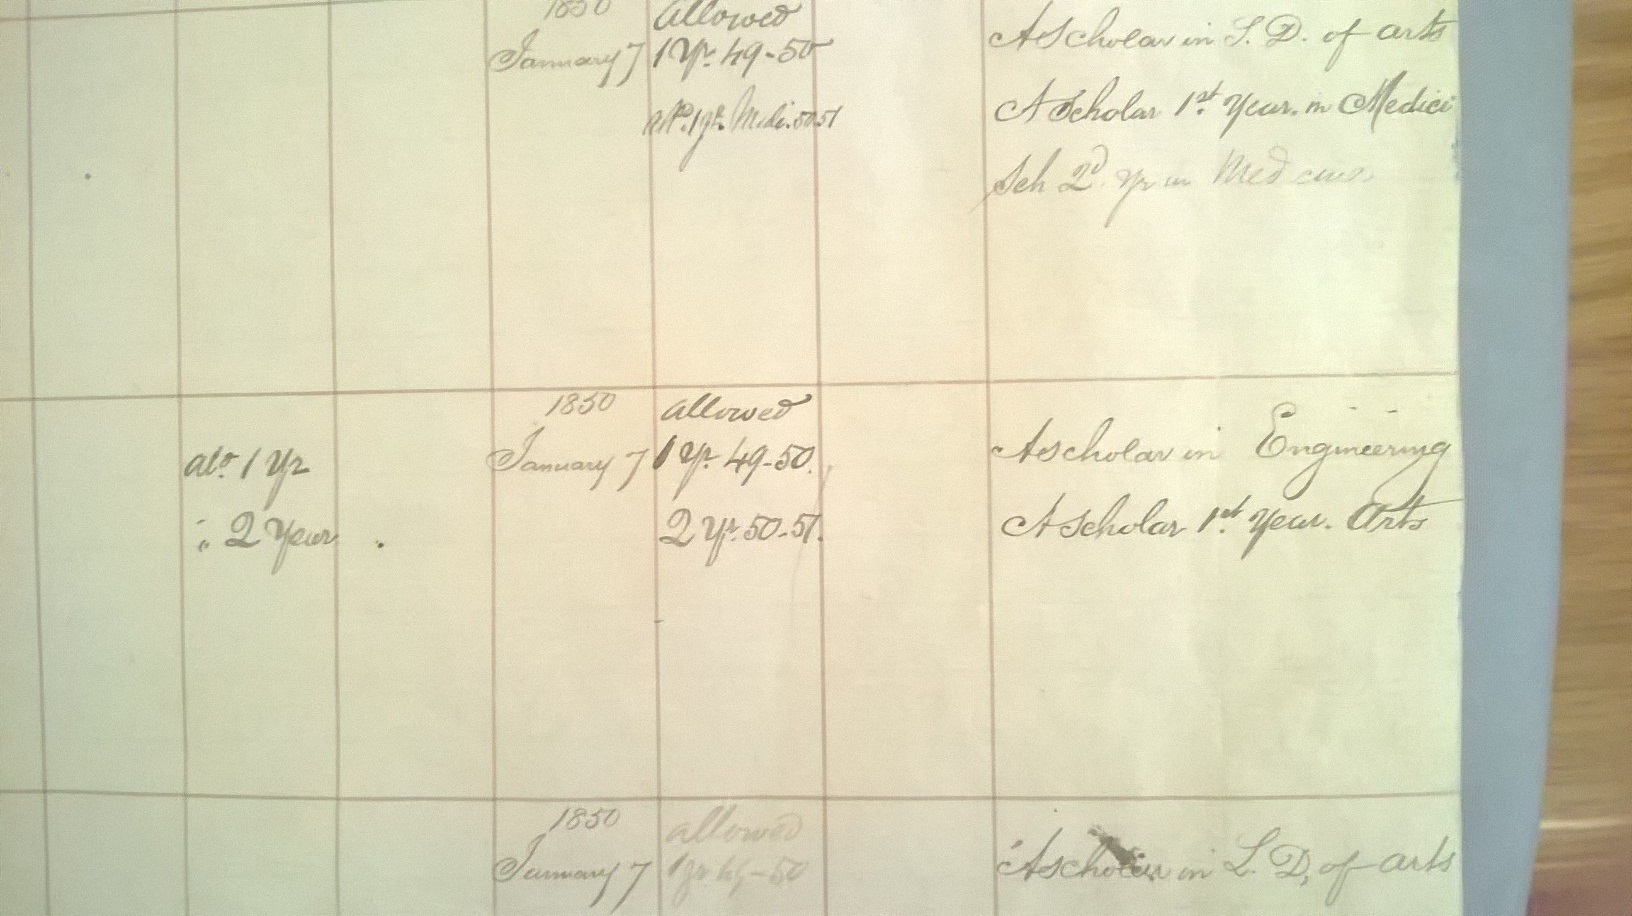 1850 allowed
January 7 1 Yr. 49-50 A Scholar in L. D. of arts
1 yr. Medi. 50 51 A Scholar 1st Year. in Medici
Sch 2d. Yr in Medicine
1850 allowed
ato. 1 Yr January 7 1 Yr. 49-50. A scholar in Engineering
" 2 Year 2 Yr. 50-51. A Scholar 1st Year. Arts
1850 allowed
January 7 1 yr 49-50 A scholar in L. D, of arts